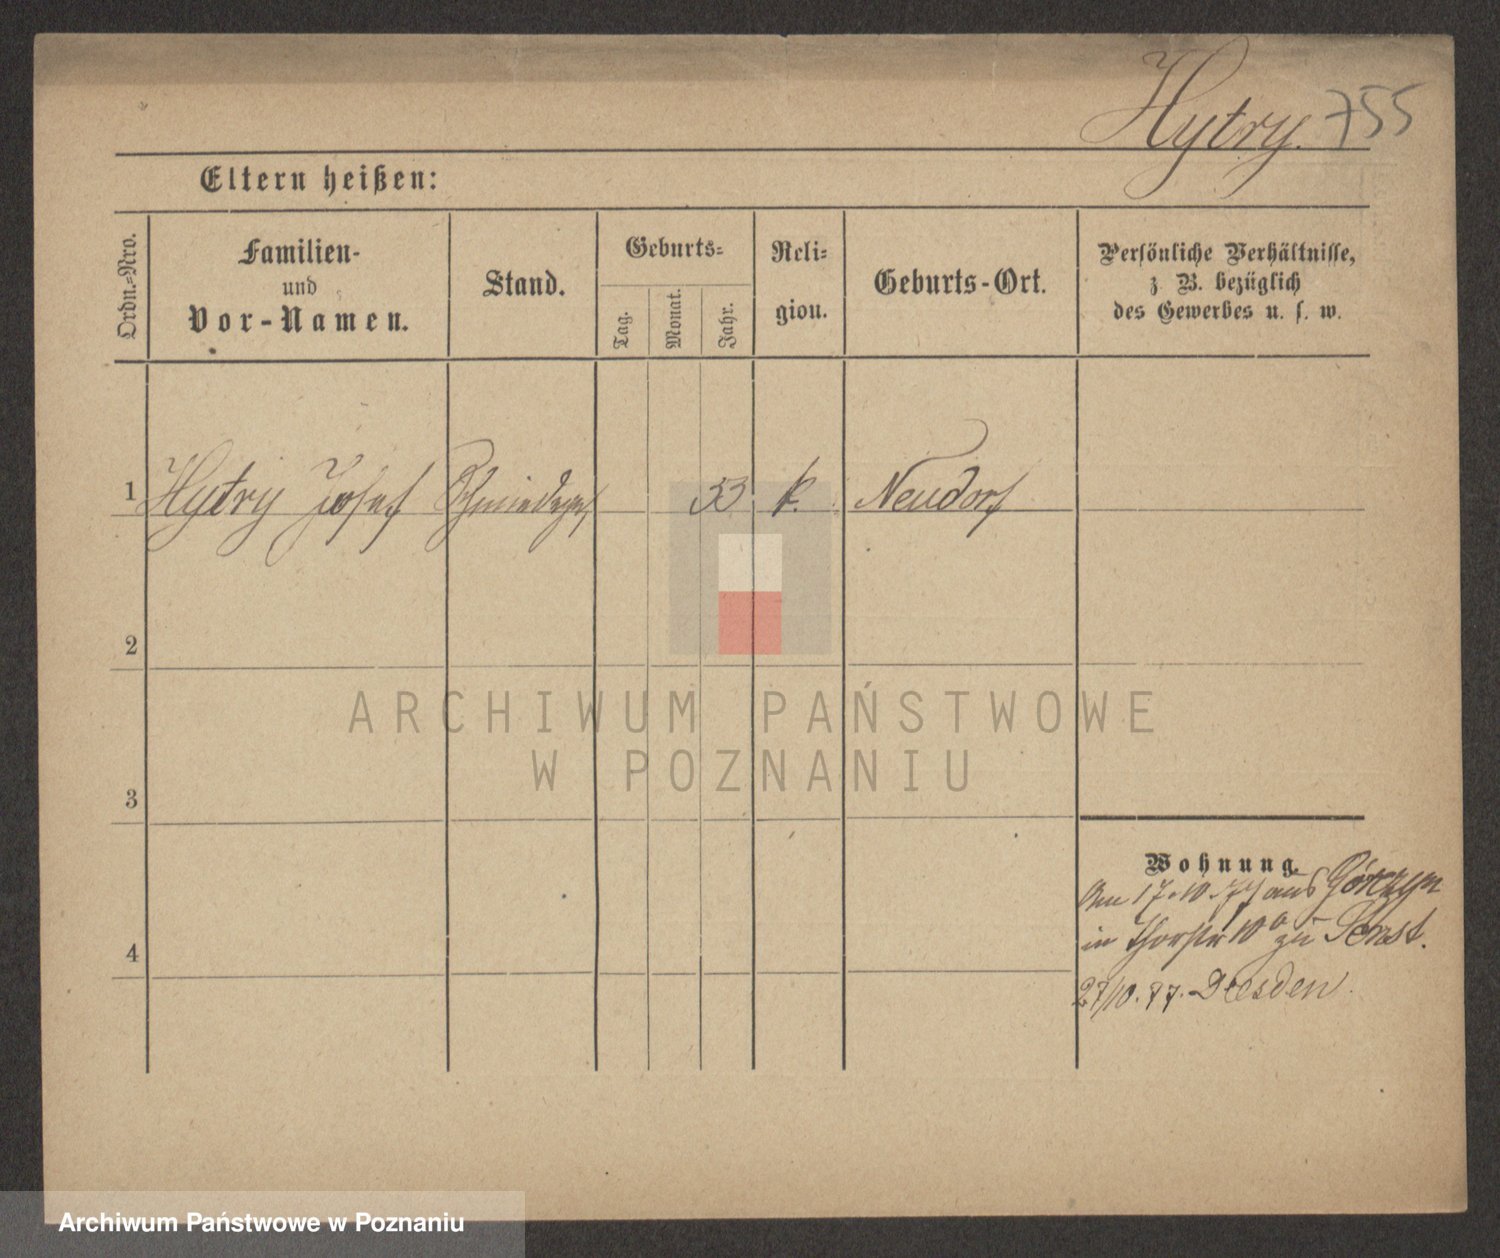 Hytry. 755
Eltern heißen:
Ordn.-Nro.
Familien-
und
Vor-Namen.
Stand.
Geburts-
Tag.
Monat.
Jahr.
Reli-
gion.
Geburts-Ort.
Persönliche Verhältnisse,
z. B. bezüglich
des Gewerbes u. s. w.
1 Hytry Josef 53 k. Neudorf
2
ARCHIWUM PAŃSTWOWE
W POZNANIU
3
Wohnung.
17.10. aus Górczyn
in Thorstr 10a zu
4
27/10.77. Dresden.
Archiwum Państwowe w Poznaniu